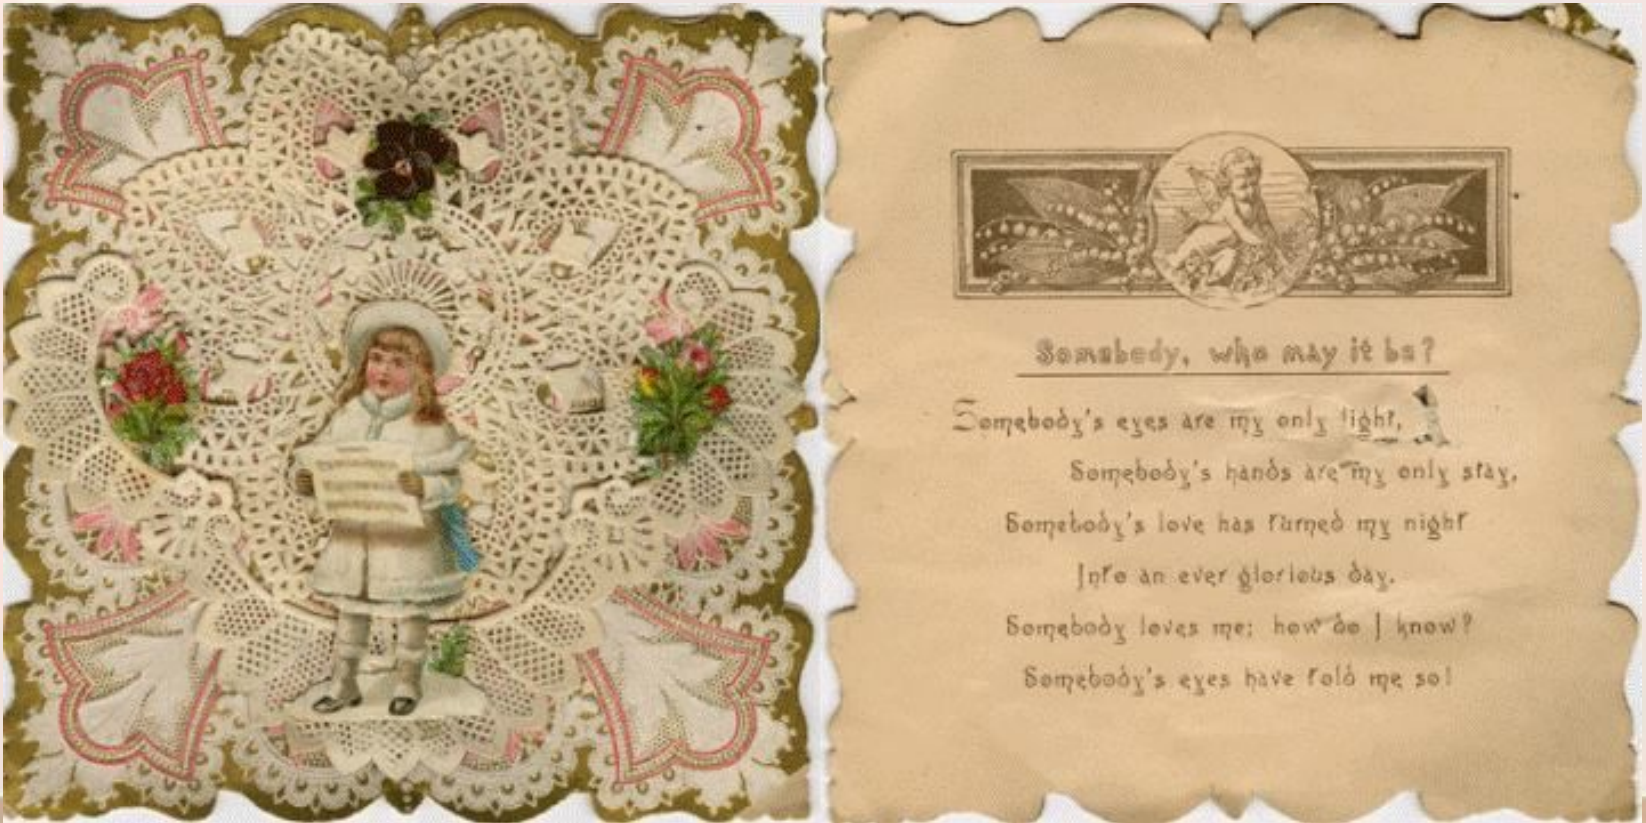 Somebody, who may it be?
Somebody's eyes are my only light,
Somebody's hands are my only stay,
Somebody's love has turned my night
Into an ever glorious day.
Somebody loves me; how do I know?
Somebody's eyes have told me so!